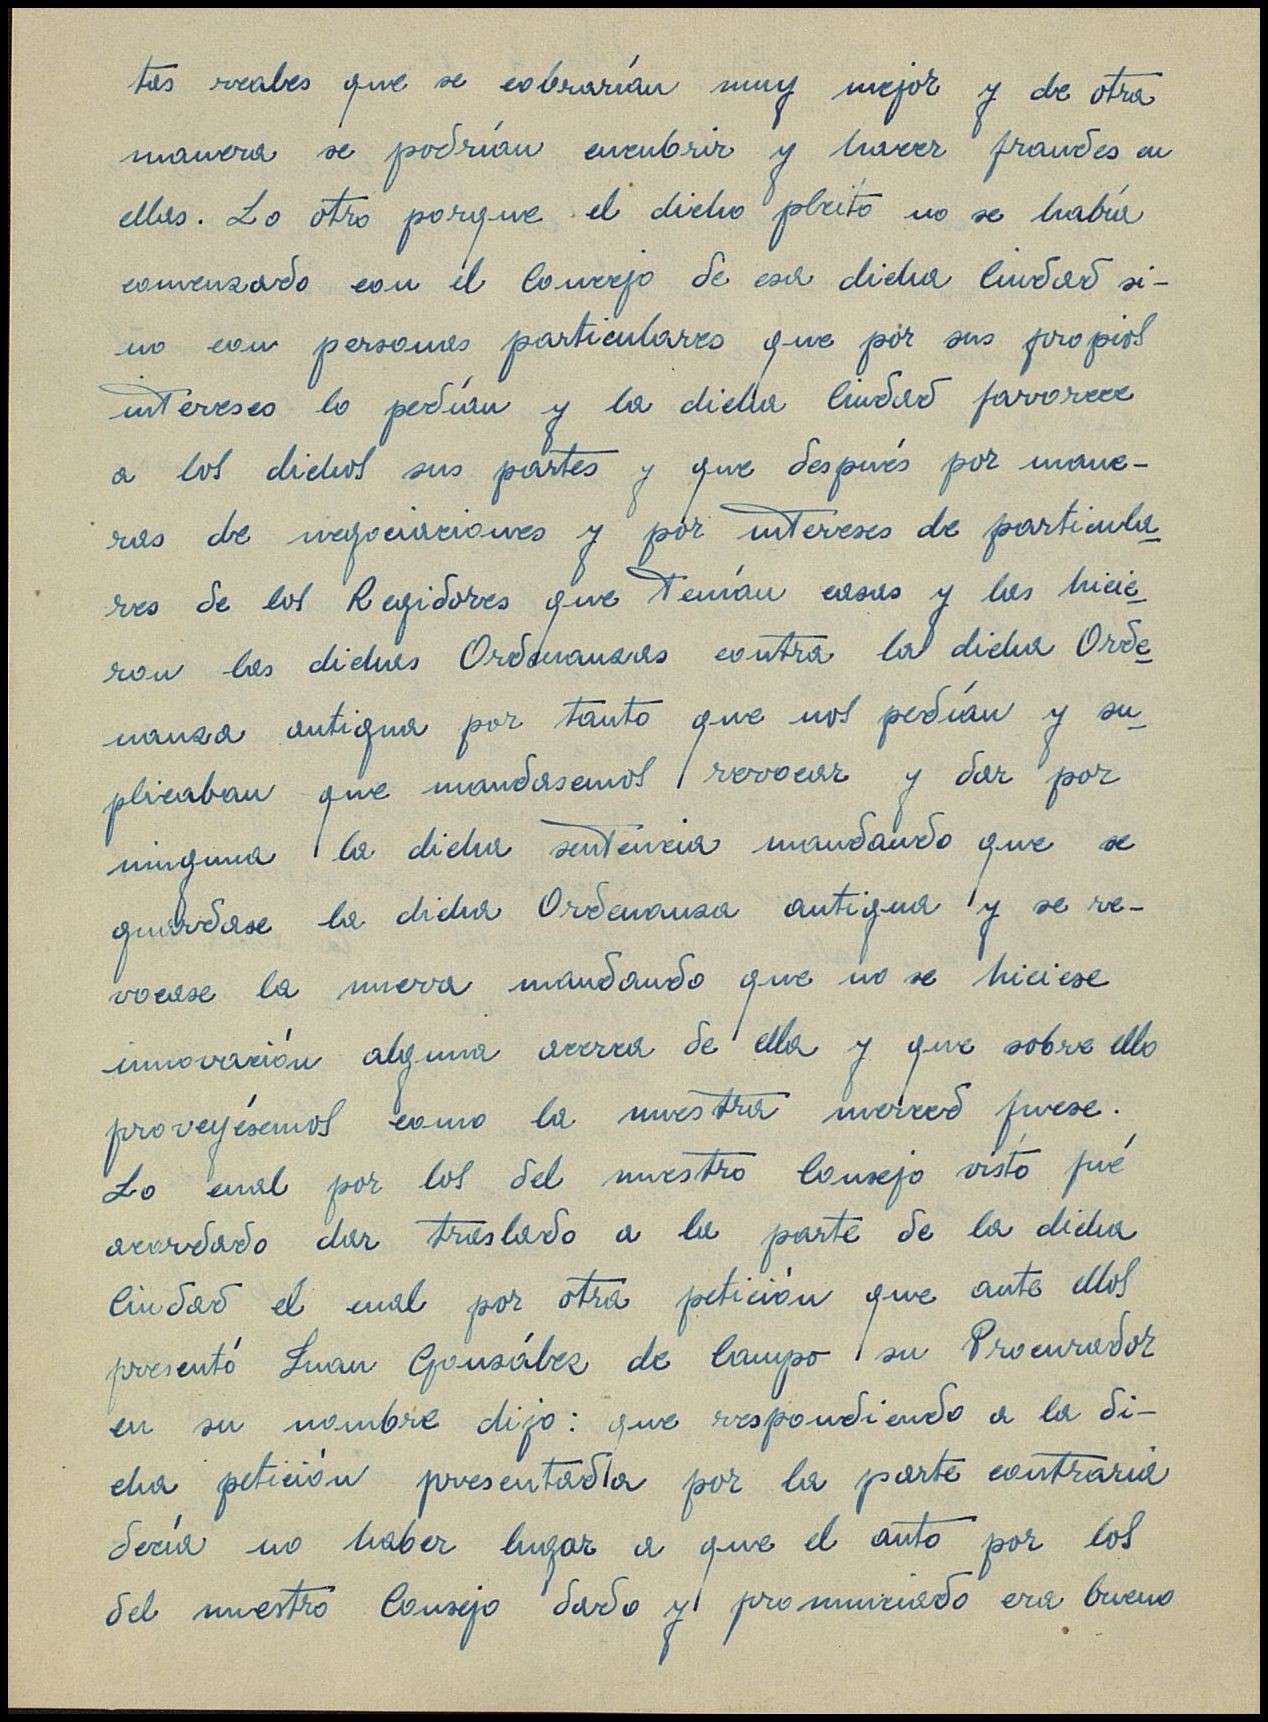 tas reales que se cobrarían muy mejor y de otra
manera se podrían encubrir y hacer fraudes en
ellas. Lo otro porque el dicho pleito no se había
comenzado con el Concejo de esa dicha Ciudad si-
no con personas particulares que por sus propios
intereses lo pedían y la dicha Ciudad favorece
a los dichos sus partes y que después por mane-
ras de negociaciones y por intereses de particula-
res de los Regidores que Tenían casas y las hicie-
ron las dichas Ordenanzas contra la dicha Orde-
nanza antigua por tanto que nos pedían y su-
plicaban que mandasemos revocar y dar por
ninguna la dicha sentencia mandando que se
guardase la dicha Ordenanza antigua y se re-
vocase la nueva mandando que no se hiciese
innovación alguna acerca de ella y que sobre ello
proveyésemos como la nuestra merced fuese.
Lo cual por los del nuestro Consejo visto fué
acordado dar traslado a la parte de la dicha
Ciudad el cual por otra petición que ante ellos
presentó Juan González de Campo su Procurador
en su nombre dijo: que respondiendo a la di-
cha petición presentada por la parte contraria
decía no haber lugar a que el auto por los
del nuestro Consejo dado y pronunciado era bueno